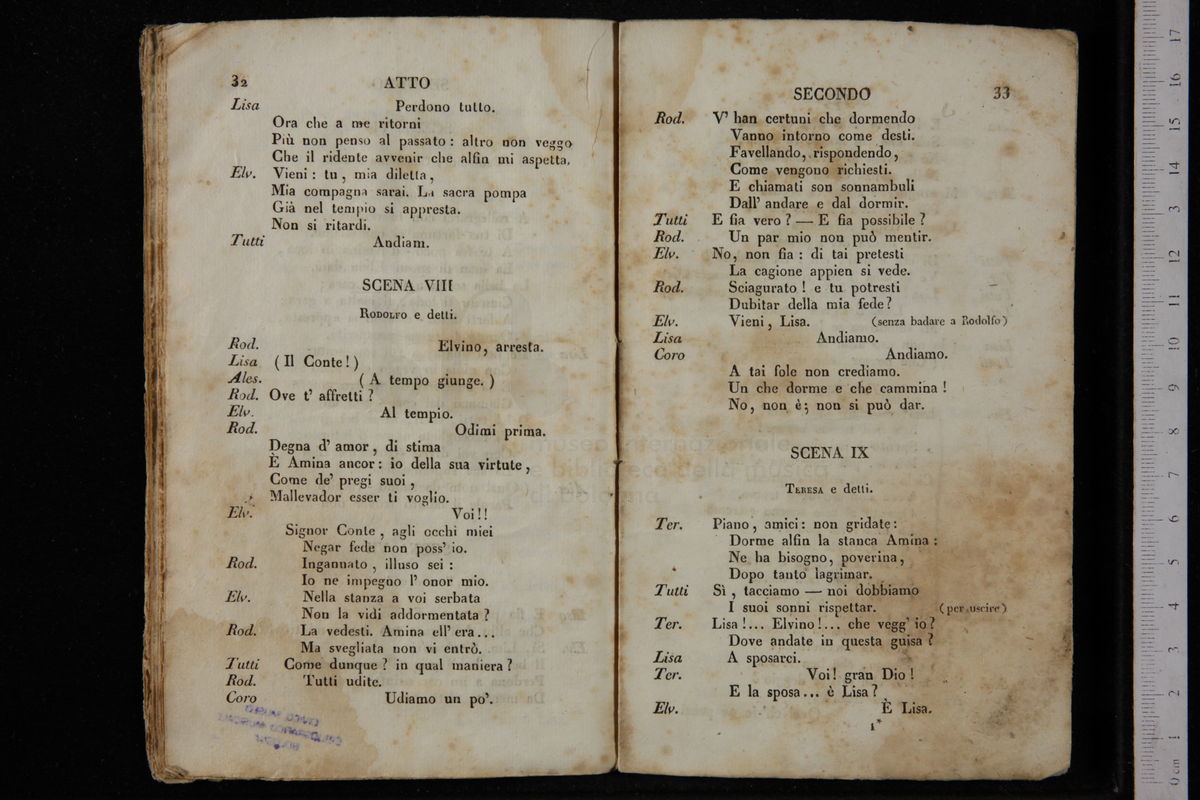 32 ATTO
Lisa Perdono tutto.
Ora che a me ritorni
Più non penso al passato : altro non veggo
Che il ridente avvenir che alfin mi aspetta.
Elv. Vieni : tu , mia diletta ,
Mia compagna sarai. La sacra pompa
Già nel tempio si appresta.
Non si ritardi.
Tutti Andiam.
SCENA VIII
RODOLFO e detti.
Rod. Elvino, arresta.
Lisa ( Il Conte ! )
Ales. ( A tempo giunge. )
Rod. Ove t' affretti ?
Elv. Al tempio.
Rod. Odimi prima.
Degna d' amor , di stima
È Amina ancor : io della sua virtute ,
Come de' pregi suoi ,
Mallevador esser ti voglio.
Elv. Voi !!
Signor Conte , agli occhi miei
Negar fede non poss' io.
Rod. Ingannato , illuso sei :
Io ne impegno l' onor mio.
Elv. Nella stanza a voi serbata
Non la vidi addormentata ?
Rod. La vedesti. Amina ell' era ...
Ma svegliata non vi entrò.
Tutti Come dunque ? in qual maniera ?
Rod. Tutti udite.
Coro Udiamo un po'.
SECONDO 33
Rod. V' han certuni che dormendo
Vanno intorno come desti.
Favellando, rispondendo ,
Come vengono richiesti.
E chiamati son sonnambuli
Dall' andare e dal dormir.
Tutti E fia vero ? — E fia possibile ?
Rod. Un par mio non può mentir.
Elv. No, non fia : di tai pretesti
La cagione appien si vede.
Rod. Sciagurato ! e tu potresti
Dubitar della mia fede ?
Elv. Vieni , Lisa. (senza badare a Rodolfo)
Lisa Andiamo.
Coro Andiamo.
A tai fole non crediamo.
Un che dorme e che cammina !
No, non è; non si può dar.
SCENA IX
TERESA e detti.
Ter. Piano , amici : non gridate :
Dorme alfin la stanca Amina :
Ne ha bisogno, poverina ,
Dopo tanto lagrimar.
Tutti Sì , tacciamo — noi dobbiamo
I suoi sonni rispettar. (per uscire)
Ter. Lisa !... Elvino !... che vegg' io ?
Dove andate in questa guisa ?
Lisa A sposarci.
Ter. Voi ! gran Dio !
E la sposa... è Lisa ?
Elv. È Lisa.
1*
museo internazionale
e biblioteca della musica
di Bologna
0 cm 1 2 3 4 5 6 7 8 9 10 11 12 13 14 15 16 17